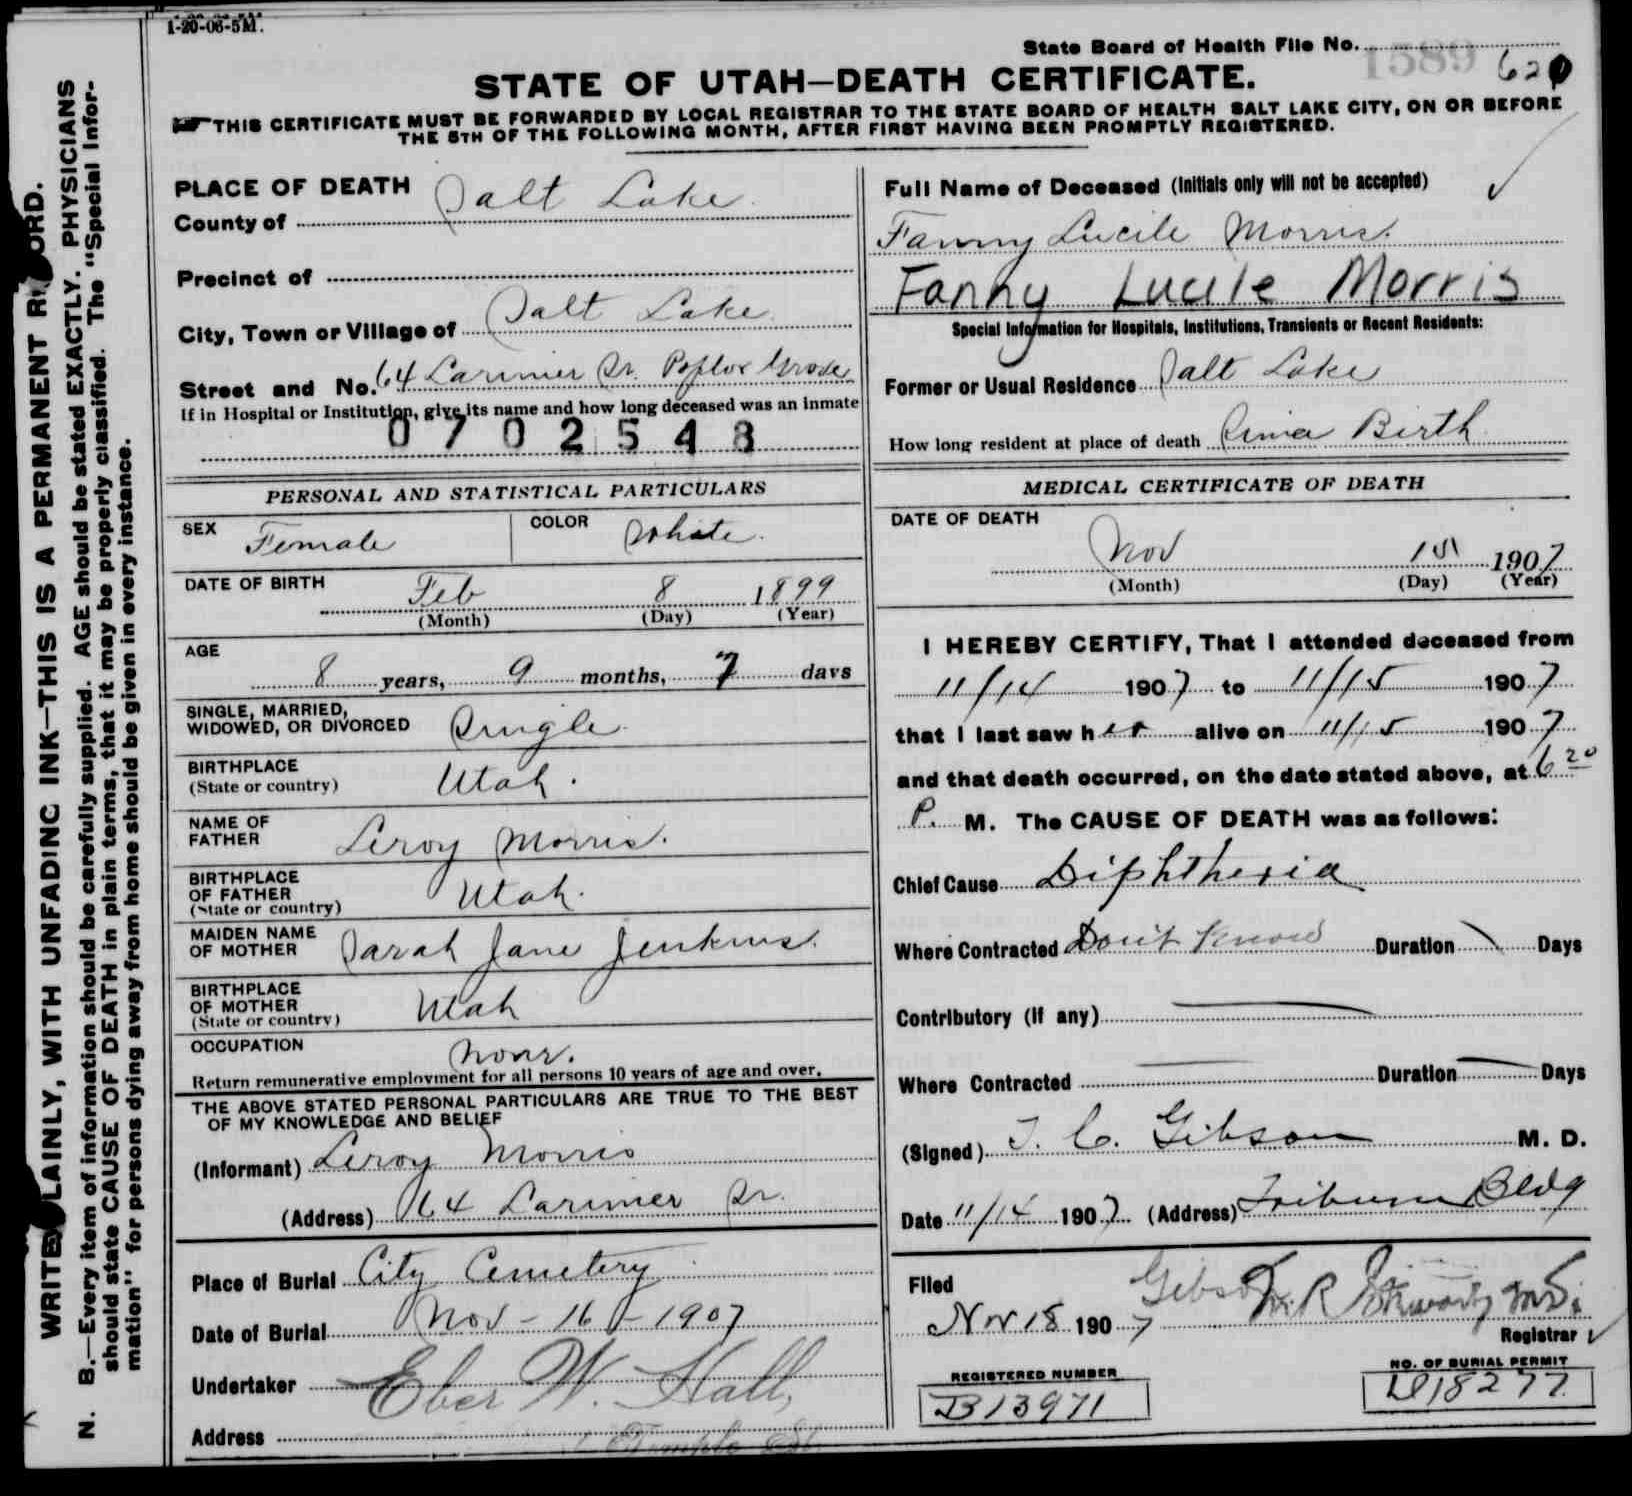 1-20-06-5M.
State Board of Health File No. 1589 620
STATE OF UTAH—DEATH CERTIFICATE.
THIS CERTIFICATE MUST BE FORWARDED BY LOCAL REGISTRAR TO THE STATE BOARD OF HEALTH SALT LAKE CITY, ON OR BEFORE
THE 5TH OF THE FOLLOWING MONTH, AFTER FIRST HAVING BEEN PROMPTLY REGISTERED.
WRITE PLAINLY, WITH UNFADING INK—THIS IS A PERMANENT RECORD.
N. B.—Every item of information should be carefully supplied. AGE should be stated EXACTLY. PHYSICIANS
should state CAUSE OF DEATH in plain terms, that it may be properly classified. The "Special Infor-
mation" for persons dying away from home should be given in every instance.
PLACE OF DEATH
County of Salt Lake
Precinct of
City, Town or Village of Salt Lake
Street and No. 64 Larimer St. Poplar Grove
If in Hospital or Institution, give its name and how long deceased was an inmate
0702548
PERSONAL AND STATISTICAL PARTICULARS
SEX Female COLOR White.
DATE OF BIRTH Feb 8 1899
(Month) (Day) (Year)
AGE
8 years, 9 months, 7 days
SINGLE, MARRIED,
WIDOWED, OR DIVORCED Single
BIRTHPLACE
(State or country) Utah.
NAME OF
FATHER Leroy Morris.
BIRTHPLACE
OF FATHER
(State or country) Utah.
MAIDEN NAME
OF MOTHER Sarah Jane Jenkins.
BIRTHPLACE
OF MOTHER
(State or country) Utah
OCCUPATION None.
Return remunerative employment for all persons 10 years of age and over.
THE ABOVE STATED PERSONAL PARTICULARS ARE TRUE TO THE BEST
OF MY KNOWLEDGE AND BELIEF
(Informant) Leroy Morris
(Address) 64 Larimer St.
Place of Burial City Cemetery
Date of Burial Nov - 16 - 1907
Undertaker Eber W. Hall,
Address Temple St.
Full Name of Deceased (Initials only will not be accepted)
Fanny Lucile Morris.
Fanny Lucile Morris
Special Information for Hospitals, Institutions, Transients or Recent Residents:
Former or Usual Residence Salt Lake
How long resident at place of death Since Birth
MEDICAL CERTIFICATE OF DEATH
DATE OF DEATH
Nov 15 1907
(Month) (Day) (Year)
I HEREBY CERTIFY, That I attended deceased from
11/14 1907 to 11/15 1907
that I last saw her alive on 11/15 1907
and that death occurred, on the date stated above, at 6 20
P. M. The CAUSE OF DEATH was as follows:
Chief Cause Diphtheria
Where Contracted Don't Know Duration Days
Contributory (If any)
Where Contracted Duration Days
(Signed) T. C. Gibson M. D.
Date 11/14 1907 (Address) Tribune Bldg
Filed Gibson
Nov 18 1907
Registrar
REGISTERED NUMBER
B13971
NO. OF BURIAL PERMIT
D18277